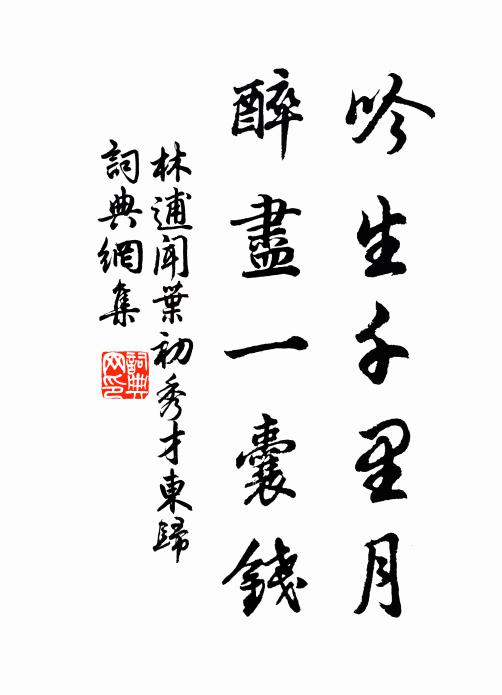 吟生千里月
醉盡一囊錢
林逋聞葉初秀才東歸
詞典網集
詞典網印